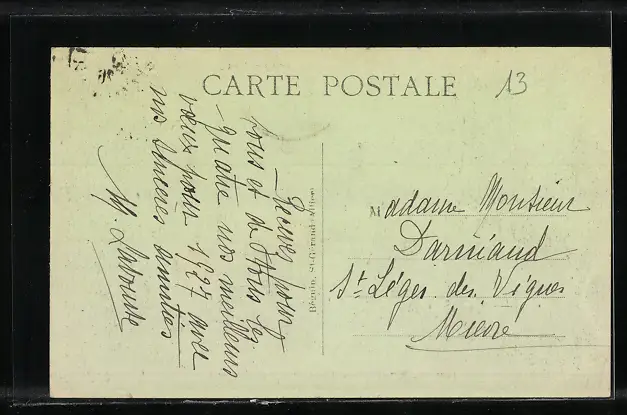 CARTE POSTALE
13
Recevez pour
tous et de tous les
quatre nos meilleurs
vœux pour 1927 avec
nos sincères amitiés
M. Laboute
Béguin, St-Gérand-
Madame Monsieur
Darniaud
St Léger des Vignes
Nièvre